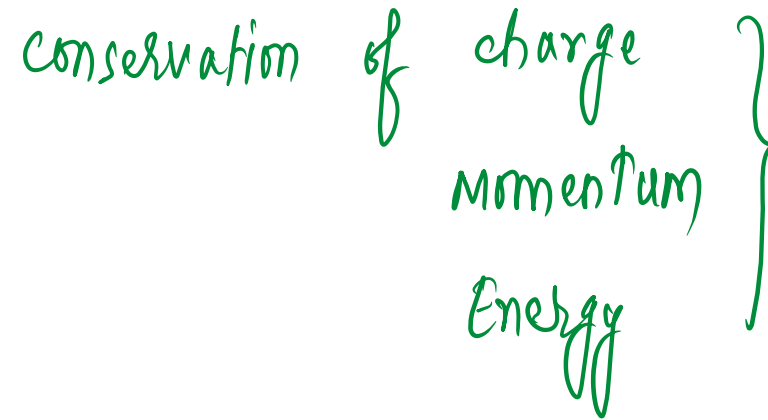 conservation of charge
Momentum
Energy